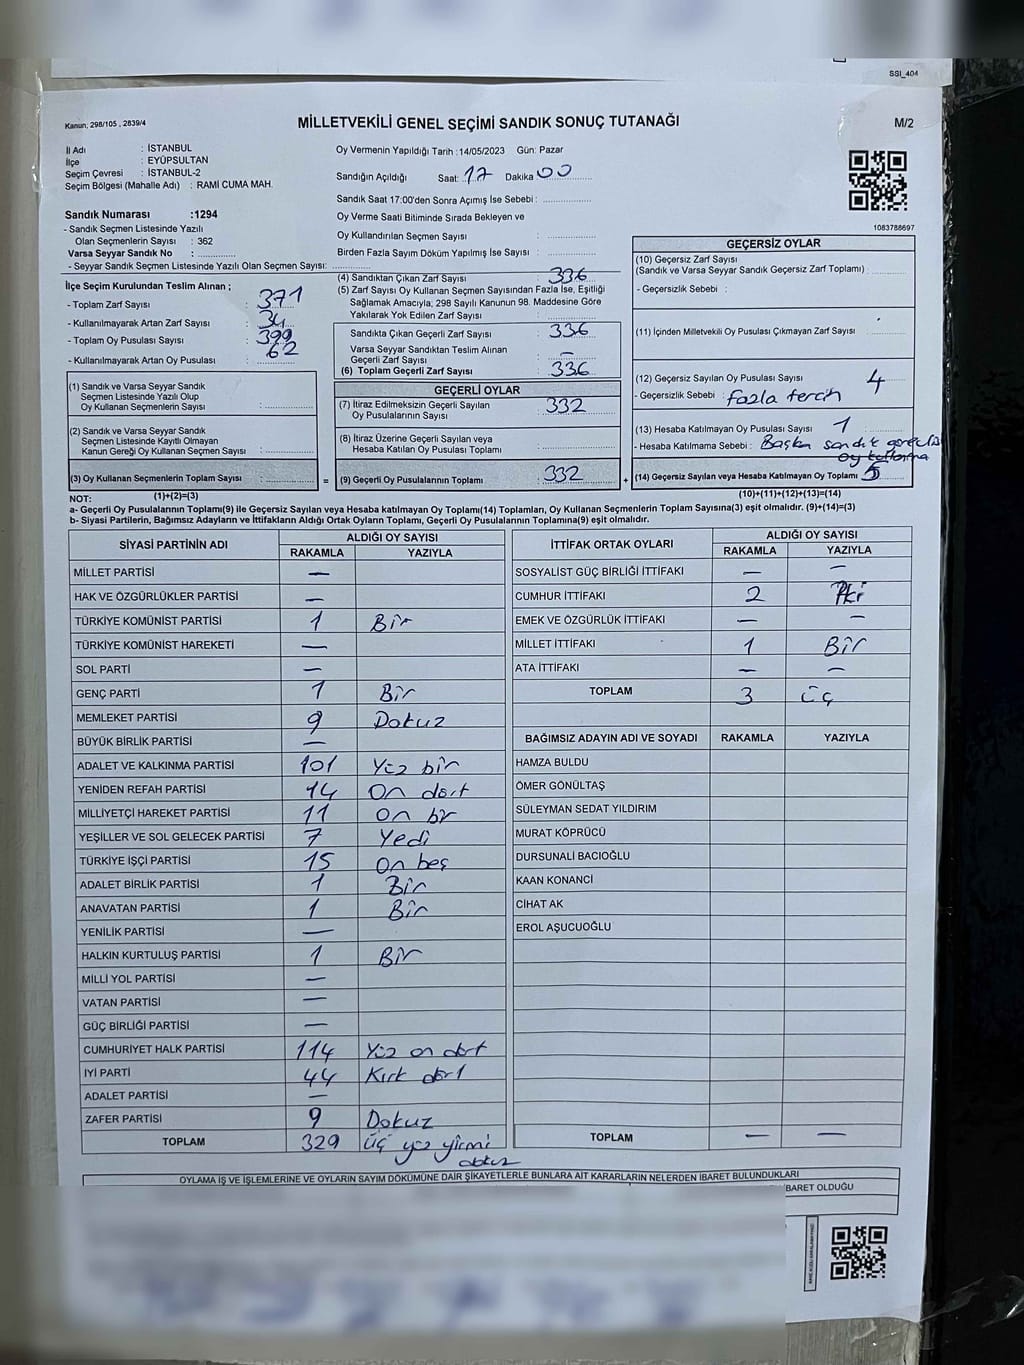 SSI_404
Kanun; 298/105 , 2839/4
MİLLETVEKİLİ GENEL SEÇİMİ SANDIK SONUÇ TUTANAĞI
M/2
İl Adı : İSTANBUL
İlçe : EYÜPSULTAN
Seçim Çevresi : İSTANBUL-2
Seçim Bölgesi (Mahalle Adı) : RAMİ CUMA MAH.
Sandık Numarası :1294
- Sandık Seçmen Listesinde Yazılı
Olan Seçmenlerin Sayısı : 362
Varsa Seyyar Sandık No :
- Seyyar Sandık Seçmen Listesinde Yazılı Olan Seçmen Sayısı:
Oy Vermenin Yapıldığı Tarih :14/05/2023 Gün: Pazar
Sandığın Açıldığı Saat: 17 Dakika 00
Sandık Saat 17:00'den Sonra Açımış İse Sebebi :
Oy Verme Saati Bitiminde Sırada Bekleyen ve
Oy Kullandırılan Seçmen Sayısı :
Birden Fazla Sayım Döküm Yapılmış İse Sayısı :
1083788697
İlçe Seçim Kurulundan Teslim Alınan ;
- Toplam Zarf Sayısı : 371
- Kullanılmayarak Artan Zarf Sayısı : 34
- Toplam Oy Pusulası Sayısı : 399
- Kullanılmayarak Artan Oy Pusulası : 62
(1) Sandık ve Varsa Seyyar Sandık
Seçmen Listesinde Yazılı Olup
Oy Kullanan Seçmenlerin Sayısı :
(2) Sandık ve Varsa Seyyar Sandık
Seçmen Listesinde Kayıtlı Olmayan
Kanun Gereği Oy Kullanan Seçmen Sayısı :
(3) Oy Kullanan Seçmenlerin Toplam Sayısı : =
(4) Sandıktan Çıkan Zarf Sayısı : 336
(5) Zarf Sayısı Oy Kullanan Seçmen Sayısından Fazla İse, Eşitliği
Sağlamak Amacıyla; 298 Sayılı Kanunun 98. Maddesine Göre
Yakılarak Yok Edilen Zarf Sayısı :
Sandıkta Çıkan Geçerli Zarf Sayısı : 336
Varsa Seyyar Sandıktan Teslim Alınan
Geçerli Zarf Sayısı : —
(6) Toplam Geçerli Zarf Sayısı : 336
GEÇERLİ OYLAR
(7) İtiraz Edilmeksizin Geçerli Sayılan
Oy Pusulalarının Sayısı : 332
(8) İtiraz Üzerine Geçerli Sayılan veya
Hesaba Katılan Oy Pusulası Toplamı :
(9) Geçerli Oy Pusulalarının Toplamı : 332 +
GEÇERSİZ OYLAR
(10) Geçersiz Zarf Sayısı
(Sandık ve Varsa Seyyar Sandık Geçersiz Zarf Toplamı) :
- Geçersizlik Sebebi :
(11) İçinden Milletvekili Oy Pusulası Çıkmayan Zarf Sayısı :
(12) Geçersiz Sayılan Oy Pusulası Sayısı : 4
- Geçersizlik Sebebi : fazla tercih
(13) Hesaba Katılmayan Oy Pusulası Sayısı : 1
- Hesaba Katılmama Sebebi : Başka sandık görevlisi
oy kullanma
(14) Geçersiz Sayılan veya Hesaba Katılmayan Oy Toplamı : 5
NOT: (1)+(2)=(3) (10)+(11)+(12)+(13)=(14)
a- Geçerli Oy Pusulalarının Toplamı(9) ile Geçersiz Sayılan veya Hesaba katılmayan Oy Toplamı(14) Toplamları, Oy Kullanan Seçmenlerin Toplam Sayısına(3) eşit olmalıdır. (9)+(14)=(3)
b- Siyasi Partilerin, Bağımsız Adayların ve İttifakların Aldığı Ortak Oyların Toplamı, Geçerli Oy Pusulalarının Toplamına(9) eşit olmalıdır.
SİYASİ PARTİNİN ADI ALDIĞI OY SAYISI
RAKAMLA YAZIYLA
MİLLET PARTİSİ —
HAK VE ÖZGÜRLÜKLER PARTİSİ —
TÜRKİYE KOMÜNİST PARTİSİ 1 Bir
TÜRKİYE KOMÜNİST HAREKETİ —
SOL PARTİ —
GENÇ PARTİ 1 Bir
MEMLEKET PARTİSİ 9 Dokuz
BÜYÜK BİRLİK PARTİSİ —
ADALET VE KALKINMA PARTİSİ 101 Yüz bir
YENİDEN REFAH PARTİSİ 14 On dört
MİLLİYETÇİ HAREKET PARTİSİ 11 on bir
YEŞİLLER VE SOL GELECEK PARTİSİ 7 Yedi
TÜRKİYE İŞÇİ PARTİSİ 15 on beş
ADALET BİRLİK PARTİSİ 1 Bir
ANAVATAN PARTİSİ 1 Bir
YENİLİK PARTİSİ —
HALKIN KURTULUŞ PARTİSİ 1 Bir
MİLLİ YOL PARTİSİ —
VATAN PARTİSİ —
GÜÇ BİRLİĞİ PARTİSİ —
CUMHURİYET HALK PARTİSİ 114 Yüz on dört
İYİ PARTİ 44 Kırk dört
ADALET PARTİSİ —
ZAFER PARTİSİ 9 Dokuz
TOPLAM 329 Üç yüz yirmi
dokuz
İTTİFAK ORTAK OYLARI ALDIĞI OY SAYISI
RAKAMLA YAZIYLA
SOSYALİST GÜÇ BİRLİĞİ İTTİFAKI — —
CUMHUR İTTİFAKI 2 İki
EMEK VE ÖZGÜRLÜK İTTİFAKI — —
MİLLET İTTİFAKI 1 Bir
ATA İTTİFAKI — —
TOPLAM 3 üç
BAĞIMSIZ ADAYIN ADI VE SOYADI RAKAMLA YAZIYLA
HAMZA BULDU
ÖMER GÖNÜLTAŞ
SÜLEYMAN SEDAT YILDIRIM
MURAT KÖPRÜCÜ
DURSUNALİ BACIOĞLU
KAAN KONANCİ
CİHAT AK
EROL AŞUCUOĞLU
TOPLAM — —
OYLAMA İŞ VE İŞLEMLERİNE VE OYLARIN SAYIM DÖKÜMÜNE DAİR ŞİKAYETLERLE BUNLARA AİT KARARLARIN NELERDEN İBARET BULUNDUKLARI
İBARET OLDUĞU